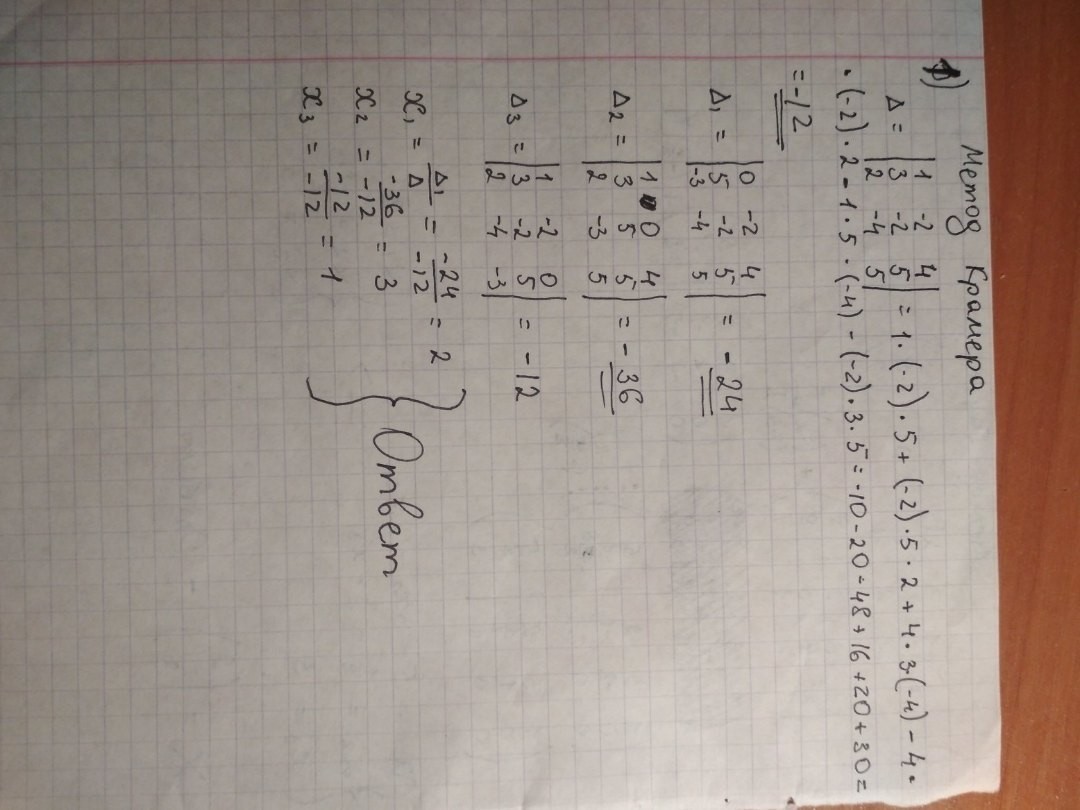 Метод Крамера
1)
Δ = | 1 -2 4 |
| 3 -2 5 |
| 2 -4 5 | = 1·(-2)·5+(-2)·5·2+4·3·(-4)-4·
·(-2)·2-1·5·(-4)-(-2)·3·5=-10-20-48+16+20+30=
=-12
Δ₁ = | 0 -2 4 |
| 5 -2 5 |
| -3 -4 5 | = -24
Δ₂ = | 1 0 4 |
| 3 5 5 |
| 2 -3 5 | = -36
Δ₃ = | 1 -2 0 |
| 3 -2 5 |
| 2 -4 -3 | = -12
x₁ = Δ₁/Δ = -24/-12 = 2
x₂ = -36/-12 = 3
x₃ = -12/-12 = 1
Ответ